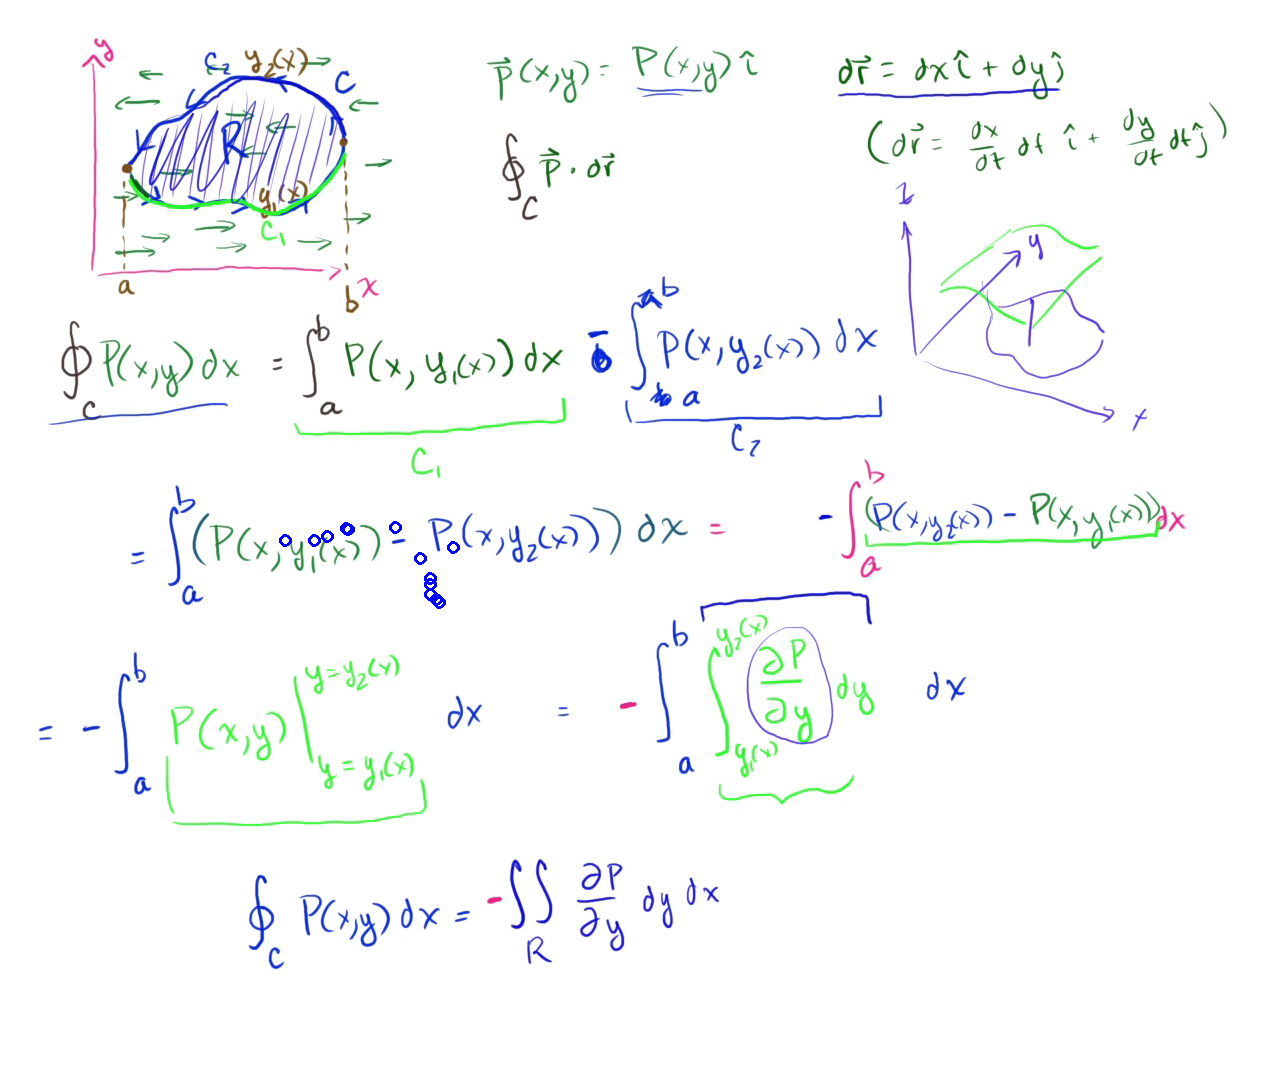 y
C₂ y₂(x)
C
R
y₁(x)
C₁
a b x
P⃗(x,y) = P(x,y) î
∮_C P⃗ · dr⃗
dr⃗ = dx î + dy ĵ
(dr⃗ = dx/dt dt î + dy/dt dt ĵ)
z
y
x
∮_C P(x,y) dx = ∫_a^b P(x, y₁(x)) dx - ∫_a^b P(x, y₂(x)) dx
C₁ C₂
= ∫_a^b (P(x, y₁(x)) - P(x, y₂(x))) dx = - ∫_a^b (P(x, y₂(x)) - P(x, y₁(x))) dx
= - ∫_a^b P(x,y) |_{y = y₁(x)}^{y = y₂(x)} dx = - ∫_a^b ∫_{y₁(x)}^{y₂(x)} ∂P/∂y dy dx
∮_C P(x,y) dx = - ∬_R ∂P/∂y dy dx